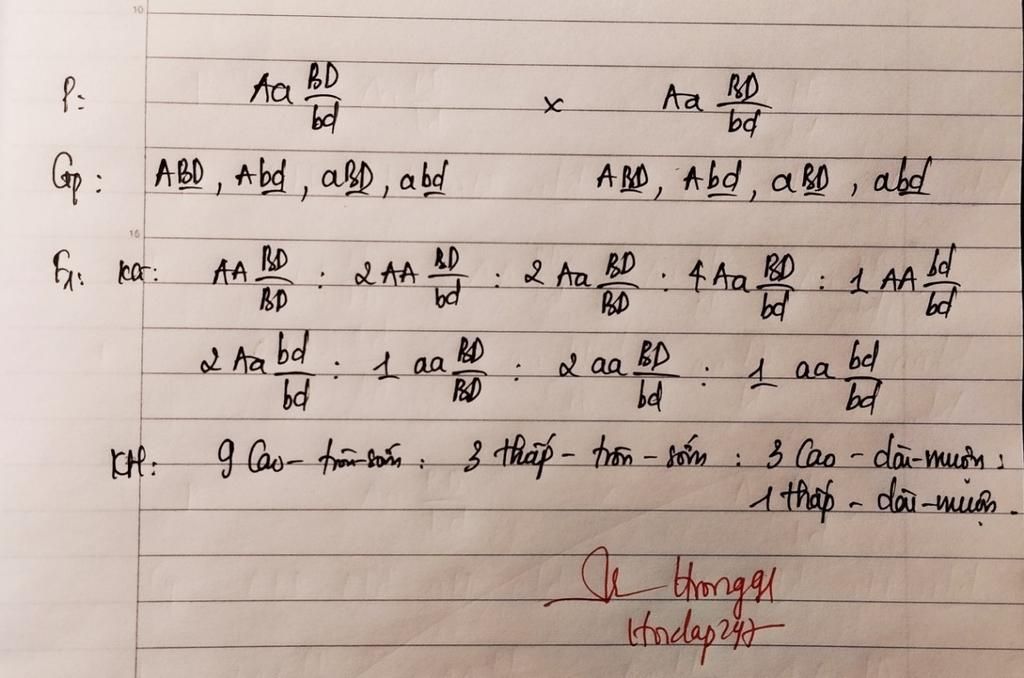 10
P: Aa BD/bd x Aa BD/bd
Gp: ABD, Abd, aBD, abd ABD, Abd, aBD, abd
15
F1: KG: AA BD/BD : 2 AA BD/bd : 2 Aa BD/BD : 4 Aa BD/bd : 1 AA bd/bd
2 Aa bd/bd : 1 aa BD/BD : 2 aa BD/bd : 1 aa bd/bd
KH: 9 Cao - tròn - sớm : 3 thấp - tròn - sớm : 3 Cao - dài - muộn :
1 thấp - dài - muộn.
Hoidap247